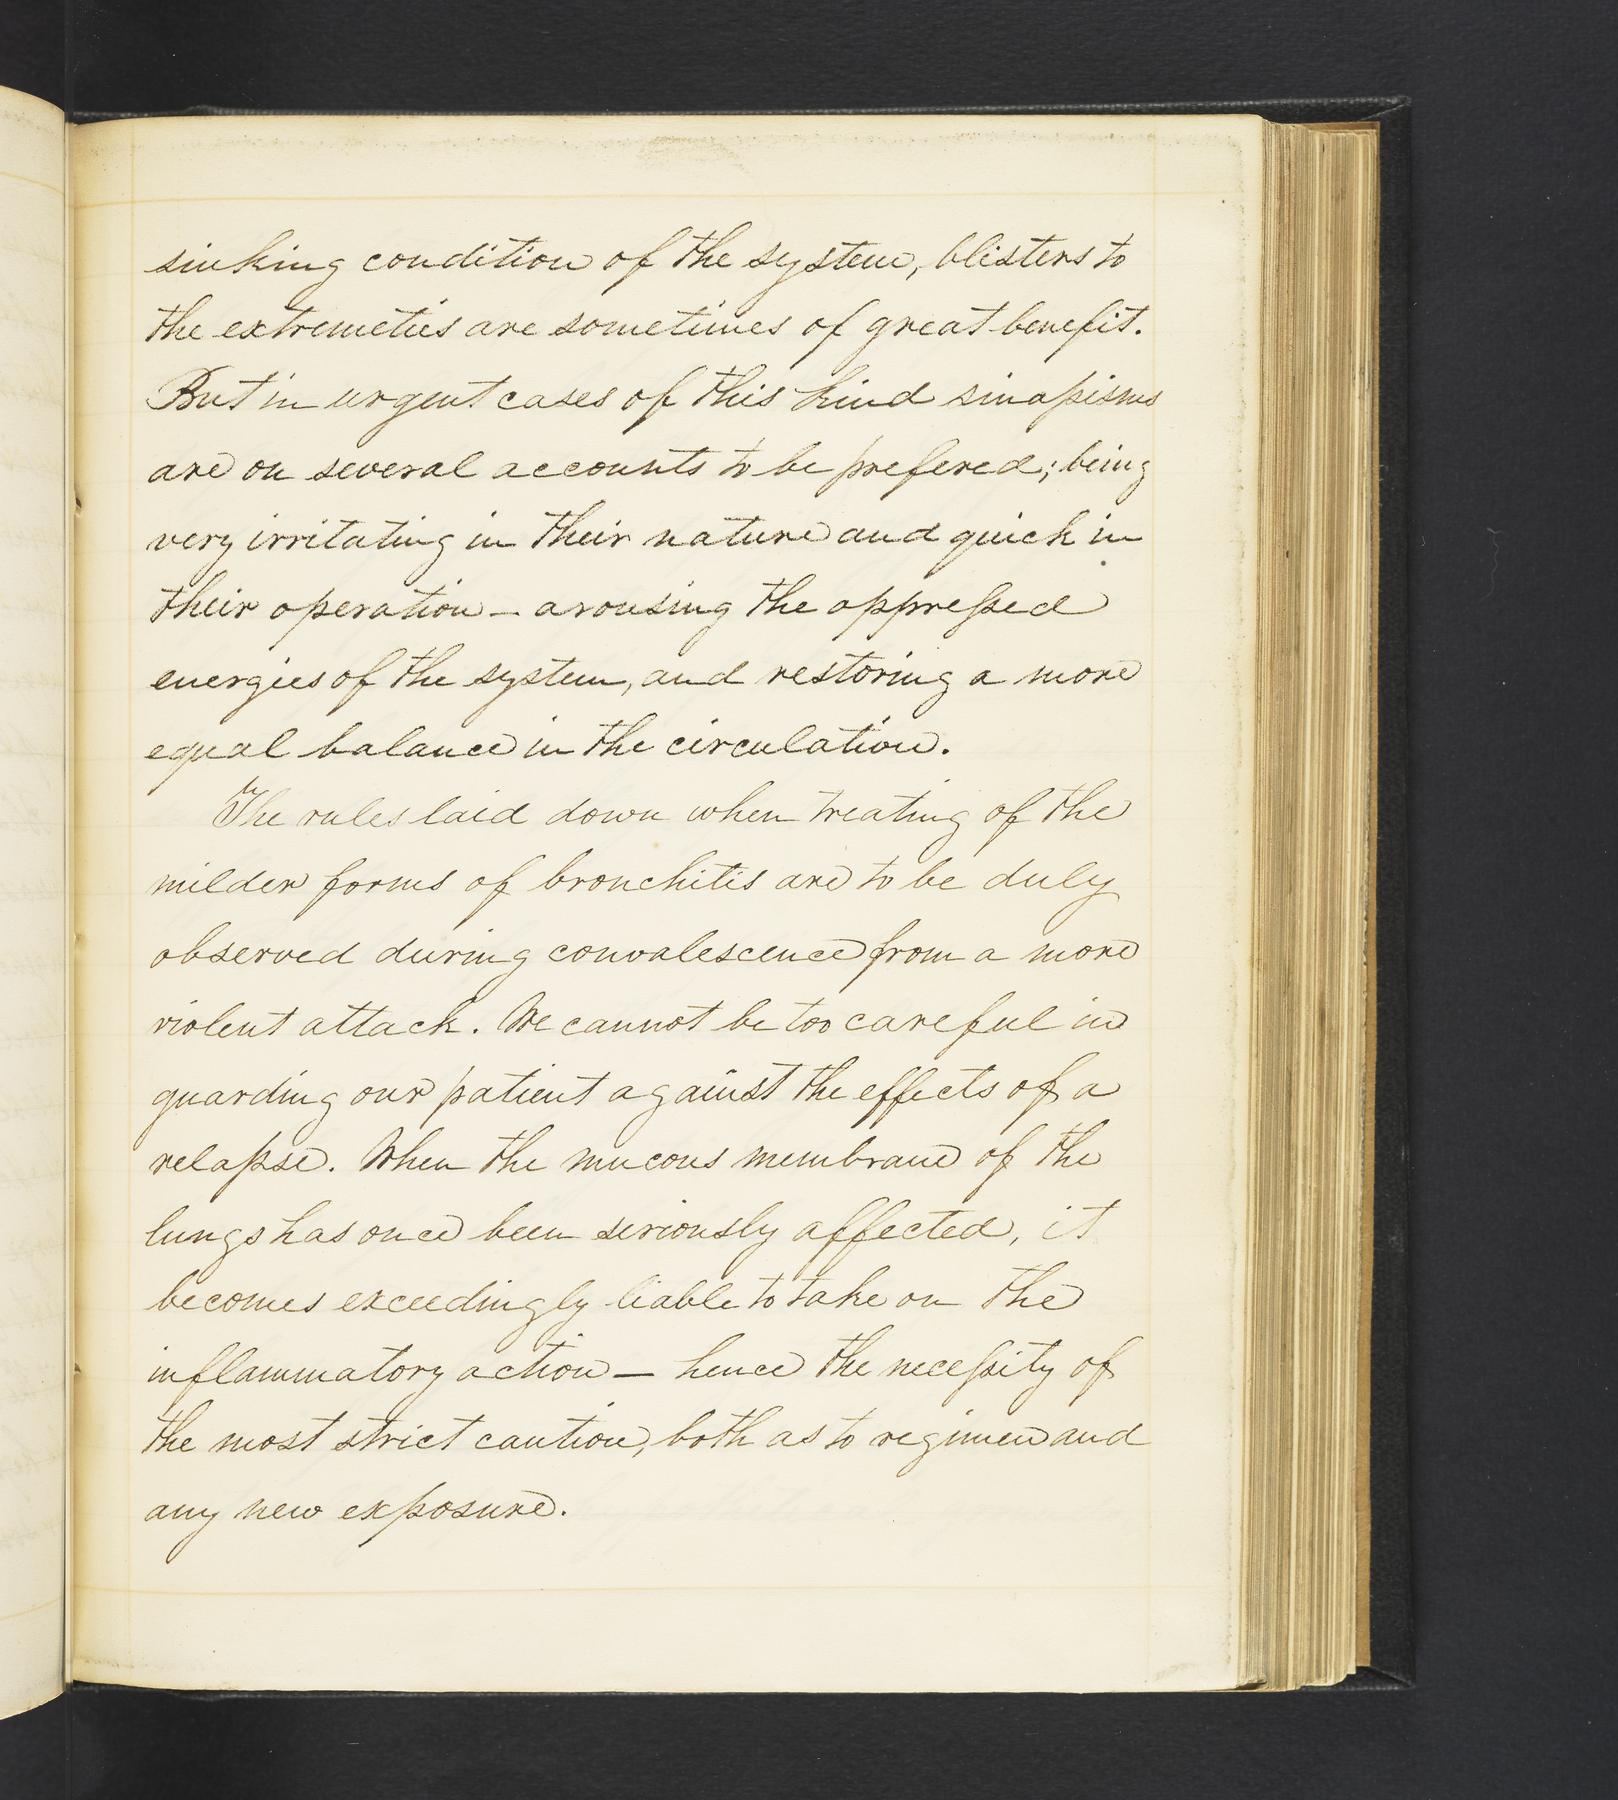 sinking condition of the system, blisters to
the extremeties are sometimes of great benefit.
But in urgent cases of this kind sinapisms
are on several accounts to be prefered; being
very irritating in their nature and quick in
their operation — arousing the oppressed
energies of the system, and restoring a more
equal balance in the circulation.
The rules laid down when treating of the
milder forms of bronchitis are to be duly
observed during convalescence from a more
violent attack. We cannot be too careful in
guarding our patient against the effects of a
relapse. When the mucous membrane of the
lungs has once been seriously affected, it
becomes exceedingly liable to take on the
inflammatory action — hence the necessity of
the most strict caution, both as to regimen and
any new exposure.